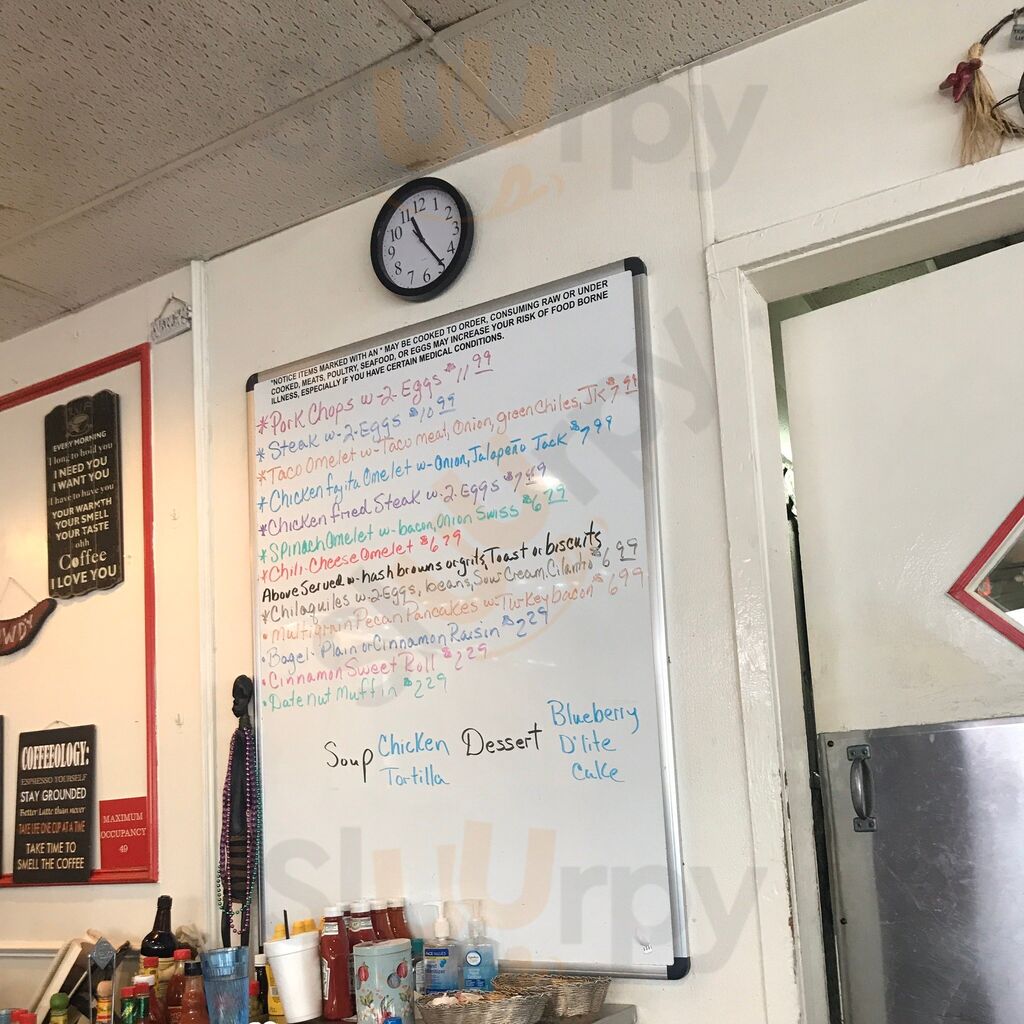 Sluurpy
12
11 1
10 2
9 3
8 4
7 6 5
*NOTICE ITEMS MARKED WITH AN * MAY BE COOKED TO ORDER, CONSUMING RAW OR UNDER
COOKED, MEATS, POULTRY, SEAFOOD, OR EGGS MAY INCREASE YOUR RISK OF FOOD BORNE
ILLNESS, ESPECIALLY IF YOU HAVE CERTAIN MEDICAL CONDITIONS.
*Pork Chops w-2-Eggs $11 99
*Steak w-2-Eggs $10 99
*Taco Omelet w-Taco meat, Onion, green Chiles, Jk $7 99
*Chicken fajita Omelet w-Onion, Jalapeño Jack $7 99
*Chicken fried Steak w-2-Eggs $7 49
*Spinach Omelet w-bacon, Onion Swiss $6 79
*Chili-Cheese Omelet $6 79
Above Served w-hash browns or grits, Toast or biscuits
*Chilaquiles w-2-Eggs, beans, Sour Cream, Cilantro $6 99
• Multigrain Pecan Pancakes w-Turkey bacon $6 99
• Bagel-Plain or Cinnamon Raisin $2 29
• Cinnamon Sweet Roll $2 29
• Date nut Muffin $2 29
Soup Chicken
Tortilla
Dessert Blueberry
D'lite
Cake
EVERY MORNING
I long to hold you
I NEED YOU
I WANT YOU
I have to have you
YOUR WARMTH
YOUR SMELL
YOUR TASTE
ohh
Coffee
I LOVE YOU
WDY
COFFEEOLOGY:
ESPRESSO YOURSELF
STAY GROUNDED
Better Latte than never
TAKE LIFE ONE CUP AT A TIME
TAKE TIME TO
SMELL THE COFFEE
MAXIMUM
OCCUPANCY
49
Sluurpy
Sluurpy